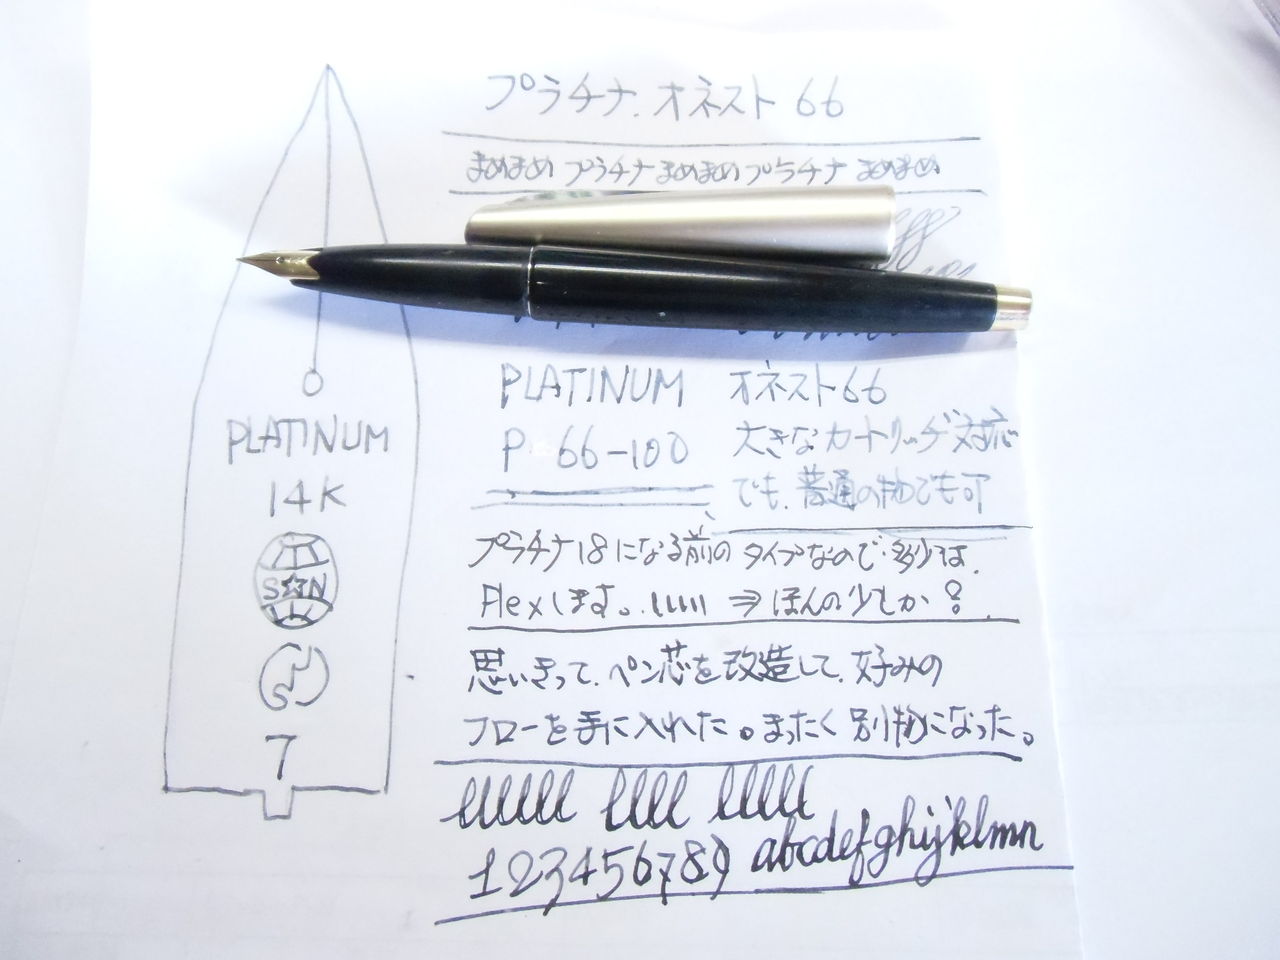 プラチナ.オネスト 66
まめまめ プラチナ まめまめ プラチナ まめまめ
PLATINUM
14K
S☆N
7
PLATINUM オネスト66
P 66-100
大きなカートリッヂ対応
でも、普通の物でも可
プラチナ18になる前の タイプなので 多少は、
Flexします。 ⇒ ほんの少しか
思いきって、ペン芯を改造して、好みの
フローを手に入れた。まったく 別物になった。
llllll llll lllll
123456789 abcdefghijklmn